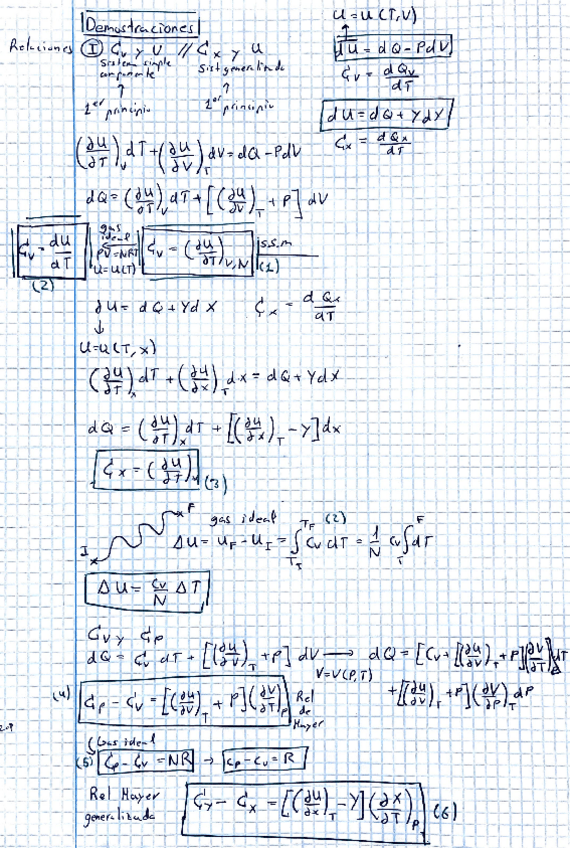 Demostraciones
U = U(T,V)
dU = dQ - PdV
C_V = dQ_V/dT
dU = dQ + YdX
C_x = dQ_x/dT
Relaciones I C_V y U // C_x y U
Sistema simple componente Sist generalizado
↑ ↑
1er principio 1er principio
(∂U/∂T)_V dT + (∂U/∂V)_T dV = dQ - PdV
dQ = (∂U/∂T)_V dT + [(∂U/∂V)_T + P] dV
C_V = dU/dT (2) gas ideal PV=NRT U=U(T) C_V = (∂U/∂T)_{V,N} s.s.m (1)
dU = dQ + YdX C_x = dQ_x/dT
↓
U=U(T,x)
(∂U/∂T)_x dT + (∂U/∂x)_T dx = dQ + Ydx
dQ = (∂U/∂T)_x dT + [(∂U/∂x)_T - Y] dx
C_x = (∂U/∂T)_x (3)
I F gas ideal (2)
ΔU = U_F - U_I = ∫_{T_I}^{T_F} C_V dT = 1/N C_V ∫_T^F dT
ΔU = C_V/N ΔT
C_V y C_P
dQ = C_V dT + [(∂U/∂V)_T + P] dV → V=V(P,T) dQ = [C_V + [(∂U/∂V)_T + P](∂V/∂T)_P] dT
+ [(∂U/∂V)_T + P](∂V/∂P)_T dP
(4) C_P - C_V = [(∂U/∂V)_T + P](∂V/∂T)_P Rel de Mayer
Gas ideal
(5) C_P - C_V = NR → c_P - c_V = R
Rel Mayer generalizada C_Y - C_x = [(∂U/∂x)_T - Y](∂X/∂T)_P (6)